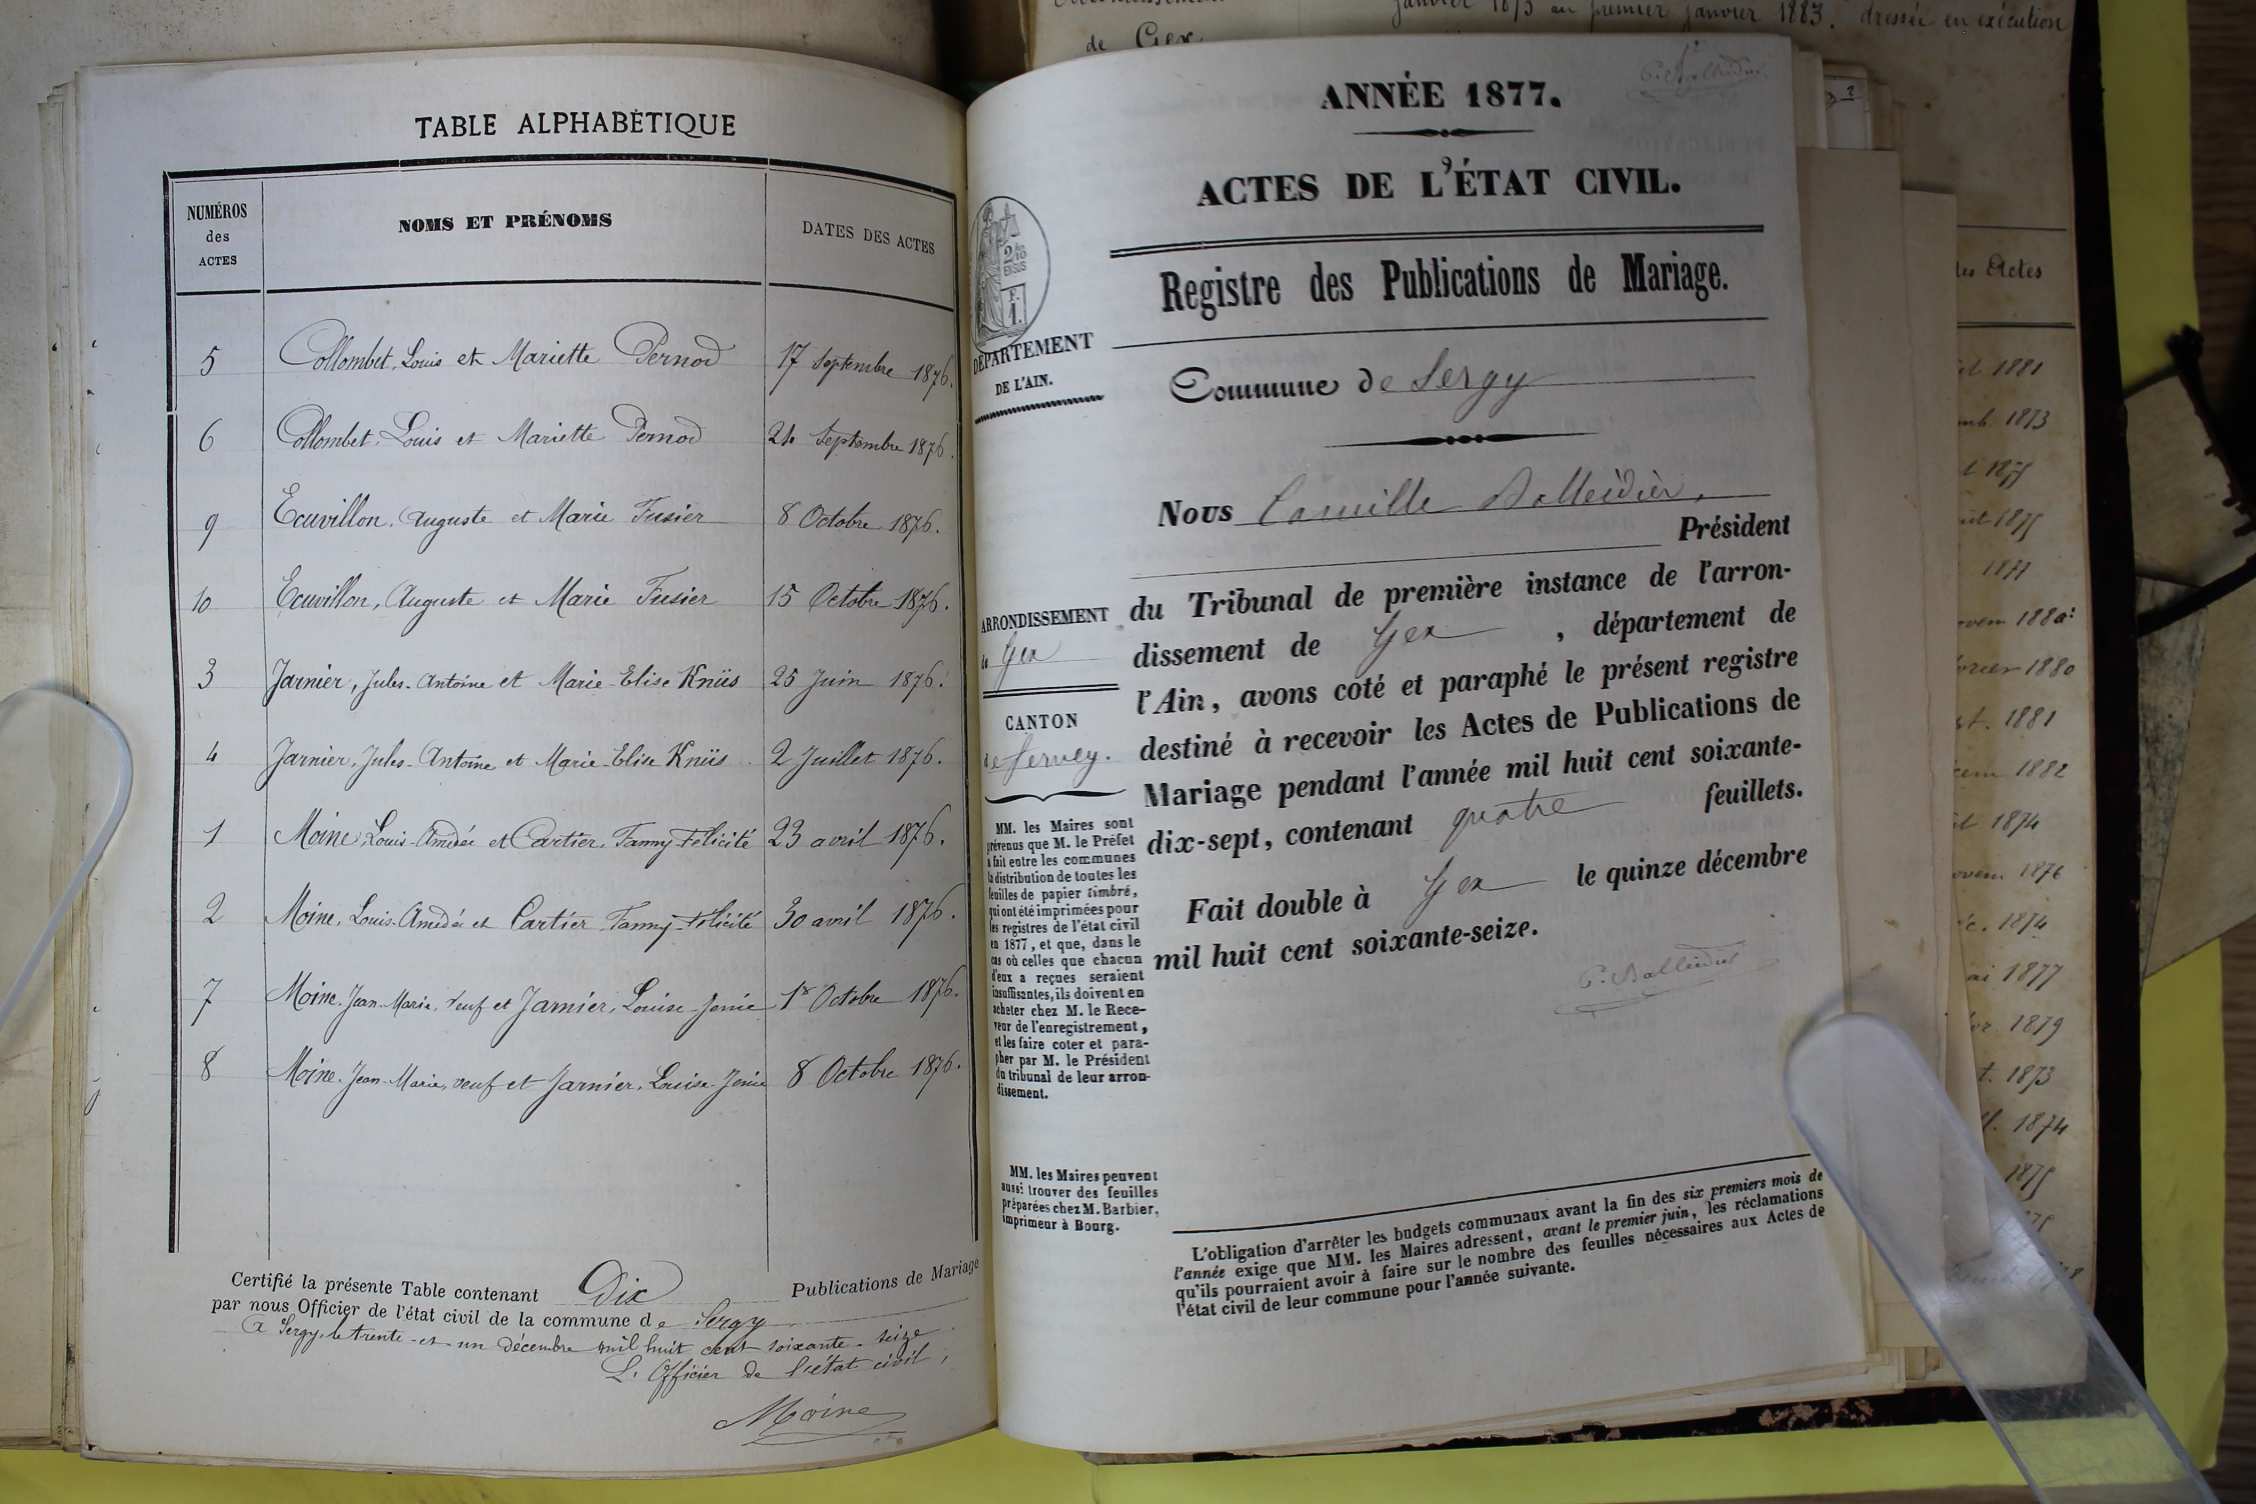 TABLE ALPHABÉTIQUE
NUMÉROS des ACTES NOMS ET PRÉNOMS DATES DES ACTES
5 Collombet, Louis et Mariette Pernod 17 Septembre 1876.
6 Collombet, Louis et Mariette Pernod 24 Septembre 1876.
9 Ecuvillon, Auguste et Marie Fusier 8 Octobre 1876.
10 Ecuvillon, Auguste et Marie Fusier 15 Octobre 1876.
3 Jarnier, Jules-Antoine et Marie-Elise Knüs 25 Juin 1876.
4 Jarnier, Jules-Antoine et Marie-Elise Knüs 2 Juillet 1876.
1 Moine, Louis-Amédée et Cartier, Fanny-Félicité 23 avril 1876.
2 Moine, Louis-Amédée et Cartier Fanny-Félicité 30 avril 1876.
7 Moine, Jean-Marie, veuf et Jarnier, Louise-Jenie 1r Octobre 1876.
8 Moine, Jean-Marie, veuf et Jarnier, Louise-Jenie 8 Octobre 1876.
Certifié la présente Table contenant Dix Publications de Mariage
par nous Officier de l'état civil de la commune de Sergy
A Sergy, le trente-et-un décembre mil huit cent soixante-seize
L'Officier de l'état civil,
Moine
janvier 1873 au premier janvier 1883. dressée en exécution
de Gex
ANNÉE 1877.
ACTES DE L'ÉTAT CIVIL.
Registre des Publications de Mariage.
DÉPARTEMENT
DE L'AIN.
Commune de Sergy
Nous Camille Balleidier,
Président
du Tribunal de première instance de l'arron-
dissement de Gex, département de
l'Ain, avons coté et paraphé le présent registre
destiné à recevoir les Actes de Publications de
Mariage pendant l'année mil huit cent soixante-
dix-sept, contenant quatre feuillets.
Fait double à Gex le quinze décembre
mil huit cent soixante-seize.
C. Balleidier
ARRONDISSEMENT
de Gex
CANTON
de Ferney.
MM. les Maires sont
prévenus que M. le Préfet
a fait entre les communes
la distribution de toutes les
feuilles de papier timbré,
qui ont été imprimées pour
les registres de l'état civil
en 1877, et que, dans le
cas où celles que chacun
d'eux a reçues seraient
insuffisantes, ils doivent en
acheter chez M. le Rece-
veur de l'enregistrement,
et les faire coter et para-
pher par M. le Président
du tribunal de leur arron-
dissement.
MM. les Maires peuvent
aussi trouver des feuilles
préparées chez M. Barbier,
imprimeur à Bourg.
L'obligation d'arrêter les budgets communaux avant la fin des six premiers mois de
l'année exige que MM. les Maires adressent, avant le premier juin, les réclamations
qu'ils pourraient avoir à faire sur le nombre des feuilles nécessaires aux Actes de
l'état civil de leur commune pour l'année suivante.
des Actes
1881
1873
1875
1875
1877
1880
1880
1881
1882
1874
1876
1874
1877
1879
1873
1874
1875